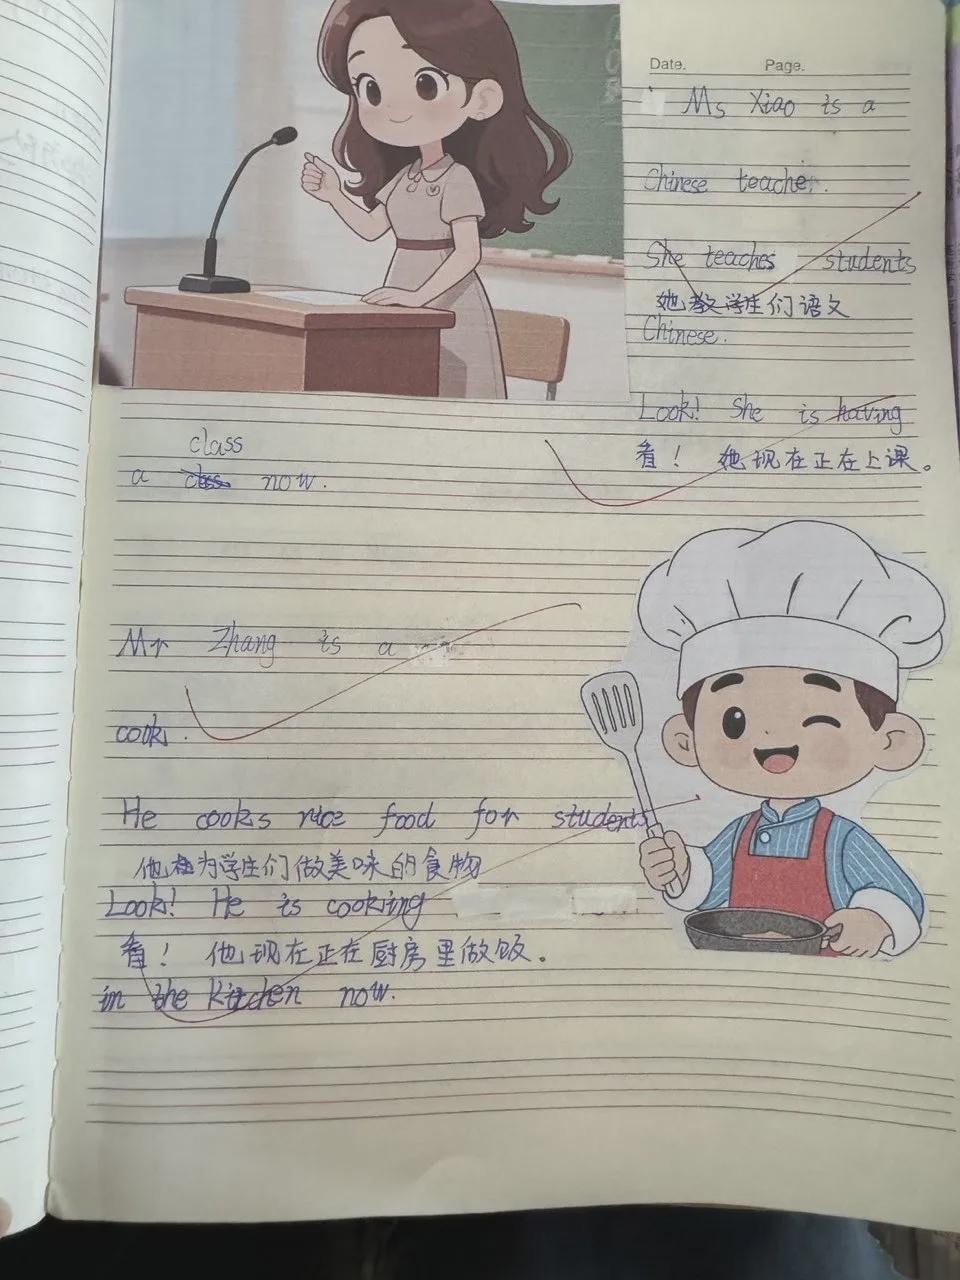 Date. Page.
Ms Xiao is a
Chinese teacher.
She teaches students
她教学生们语文
Chinese.
Look! She is having
看！她现在正在上课。
class
a now.
Mr Zhang is a
cook.
He cooks nice food for students
他为学生们做美味的食物
Look! He is cooking
看！他现在正在厨房里做饭。
in the kitchen now.